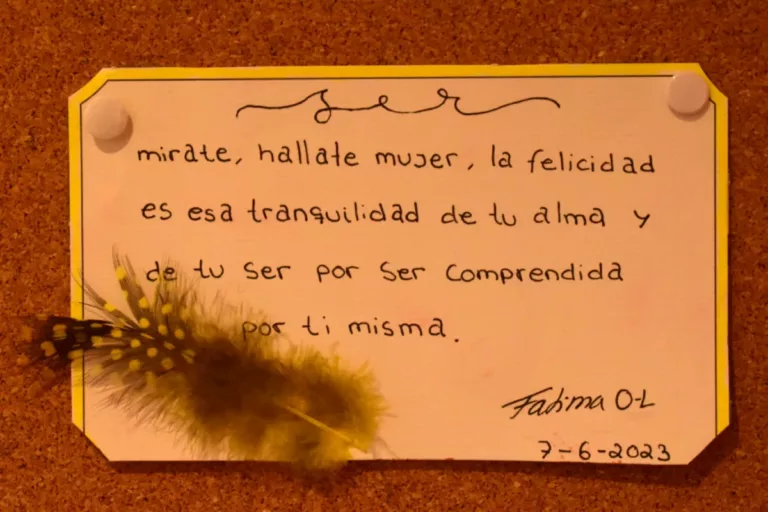 ser
mirate, hallate mujer, la felicidad
es esa tranquilidad de tu alma y
de tu ser por ser comprendida
por ti misma.
Fatima O-L
7-6-2023